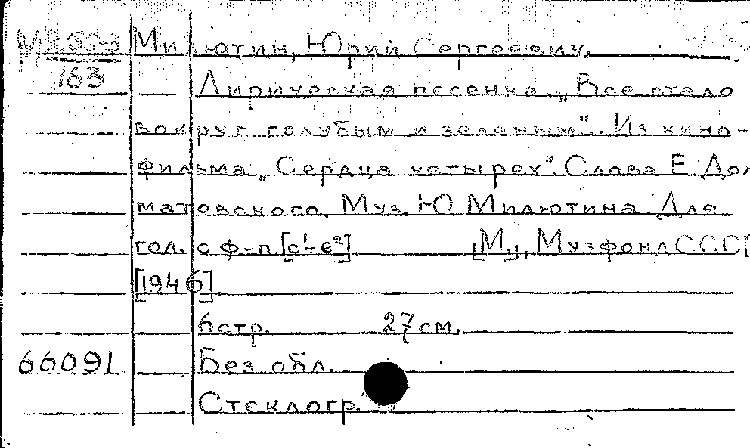 Милютин, Юрий Сергеевич.
163
Лирическая песенка „Все стало
вокруг голубым и зеленым". Из кино-
фильма „Сердца четырех". Слова Е. Дол
матовского. Муз. Ю. Милютина. Для
гол. с ф-п. [c¹-e²] [М.], Музфонд СССР
[1946]
6 стр. 27 см.
66091 Без обл.
Стеклогр.